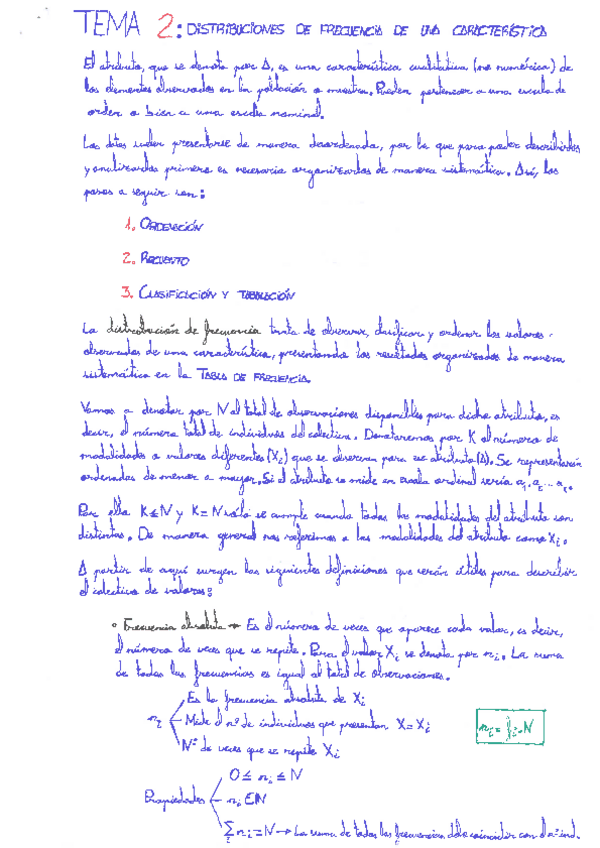 TEMA 2: DISTRIBUCIONES DE FRECUENCIA DE UNA CARACTERÍSTICA
El atributo, que se denota por A, es una característica cualitativa (no numérica) de
los elementos observados en la población o muestra. Pueden pertenecer a una escala de
orden o bien a una escala nominal.
Los datos suelen presentarse de manera desordenada, por lo que para poder describirlos
y analizarlos primero es necesario organizarlos de manera sistemática. Así, los
pasos a seguir son:
1. ORDENACIÓN
2. RECUENTO
3. CLASIFICACIÓN Y TABULACIÓN
La distribución de frecuencia trata de observar, clasificar y ordenar los valores
observados de una característica, presentando los resultados organizados de manera
sistemática en la TABLA DE FRECUENCIA.
Vamos a denotar por N al total de observaciones disponibles para dicho atributo, es
decir, el número total de individuos del colectivo. Denotaremos por K al número de
modalidades o valores diferentes (Xi) que se observan para ese atributo (A). Se representarán
ordenados de menor a mayor. Si el atributo se mide en escala ordinal sería a1, a2 ... ai.
Por ello K≤N y K=N sólo se cumple cuando todas las modalidades del atributo son
distintas. De manera general nos referimos a las modalidades del atributo como Xi.
A partir de aquí surgen las siguientes definiciones que serán útiles para describir
el colectivo de valores:
• Frecuencia absoluta → Es el número de veces que aparece cada valor, es decir,
el número de veces que se repite. Para el valor Xi se denota por ni. La suma
de todas las frecuencias es igual al total de observaciones.
Es la frecuencia absoluta de Xi
ni Mide el nº de individuos que presentan X=Xi
Nº de veces que se repite Xi
ni = fi·N
0 ≤ ni ≤ N
Propiedades ni ∈ N
∑ ni = N → La suma de todas las frecuencias debe coincidir con el nº ind.